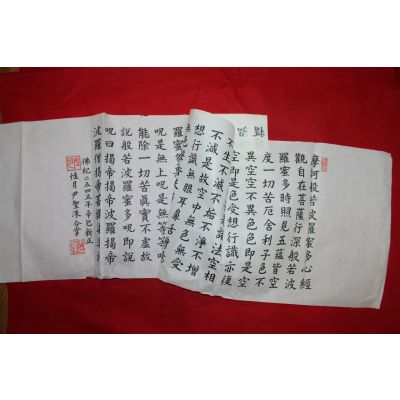 摩訶般若波羅蜜多心經
觀自在菩薩行深般若波
羅蜜多時照見五蘊皆空
度一切苦厄舍利子色不
異空空不異色色即是空
空即是色受想行識亦復
諸法空相
不滅不垢不淨不增
不減是故空中無色無受
想行識無眼耳鼻舌
羅蜜
呪是無上呪是無等等呪
能除一切苦眞實不虛故
說般若波羅蜜多呪即說
呪曰揭帝揭帝波羅揭帝
波羅僧揭帝菩提
佛紀二五四五年辛巳新正
性月尹聖洙合掌